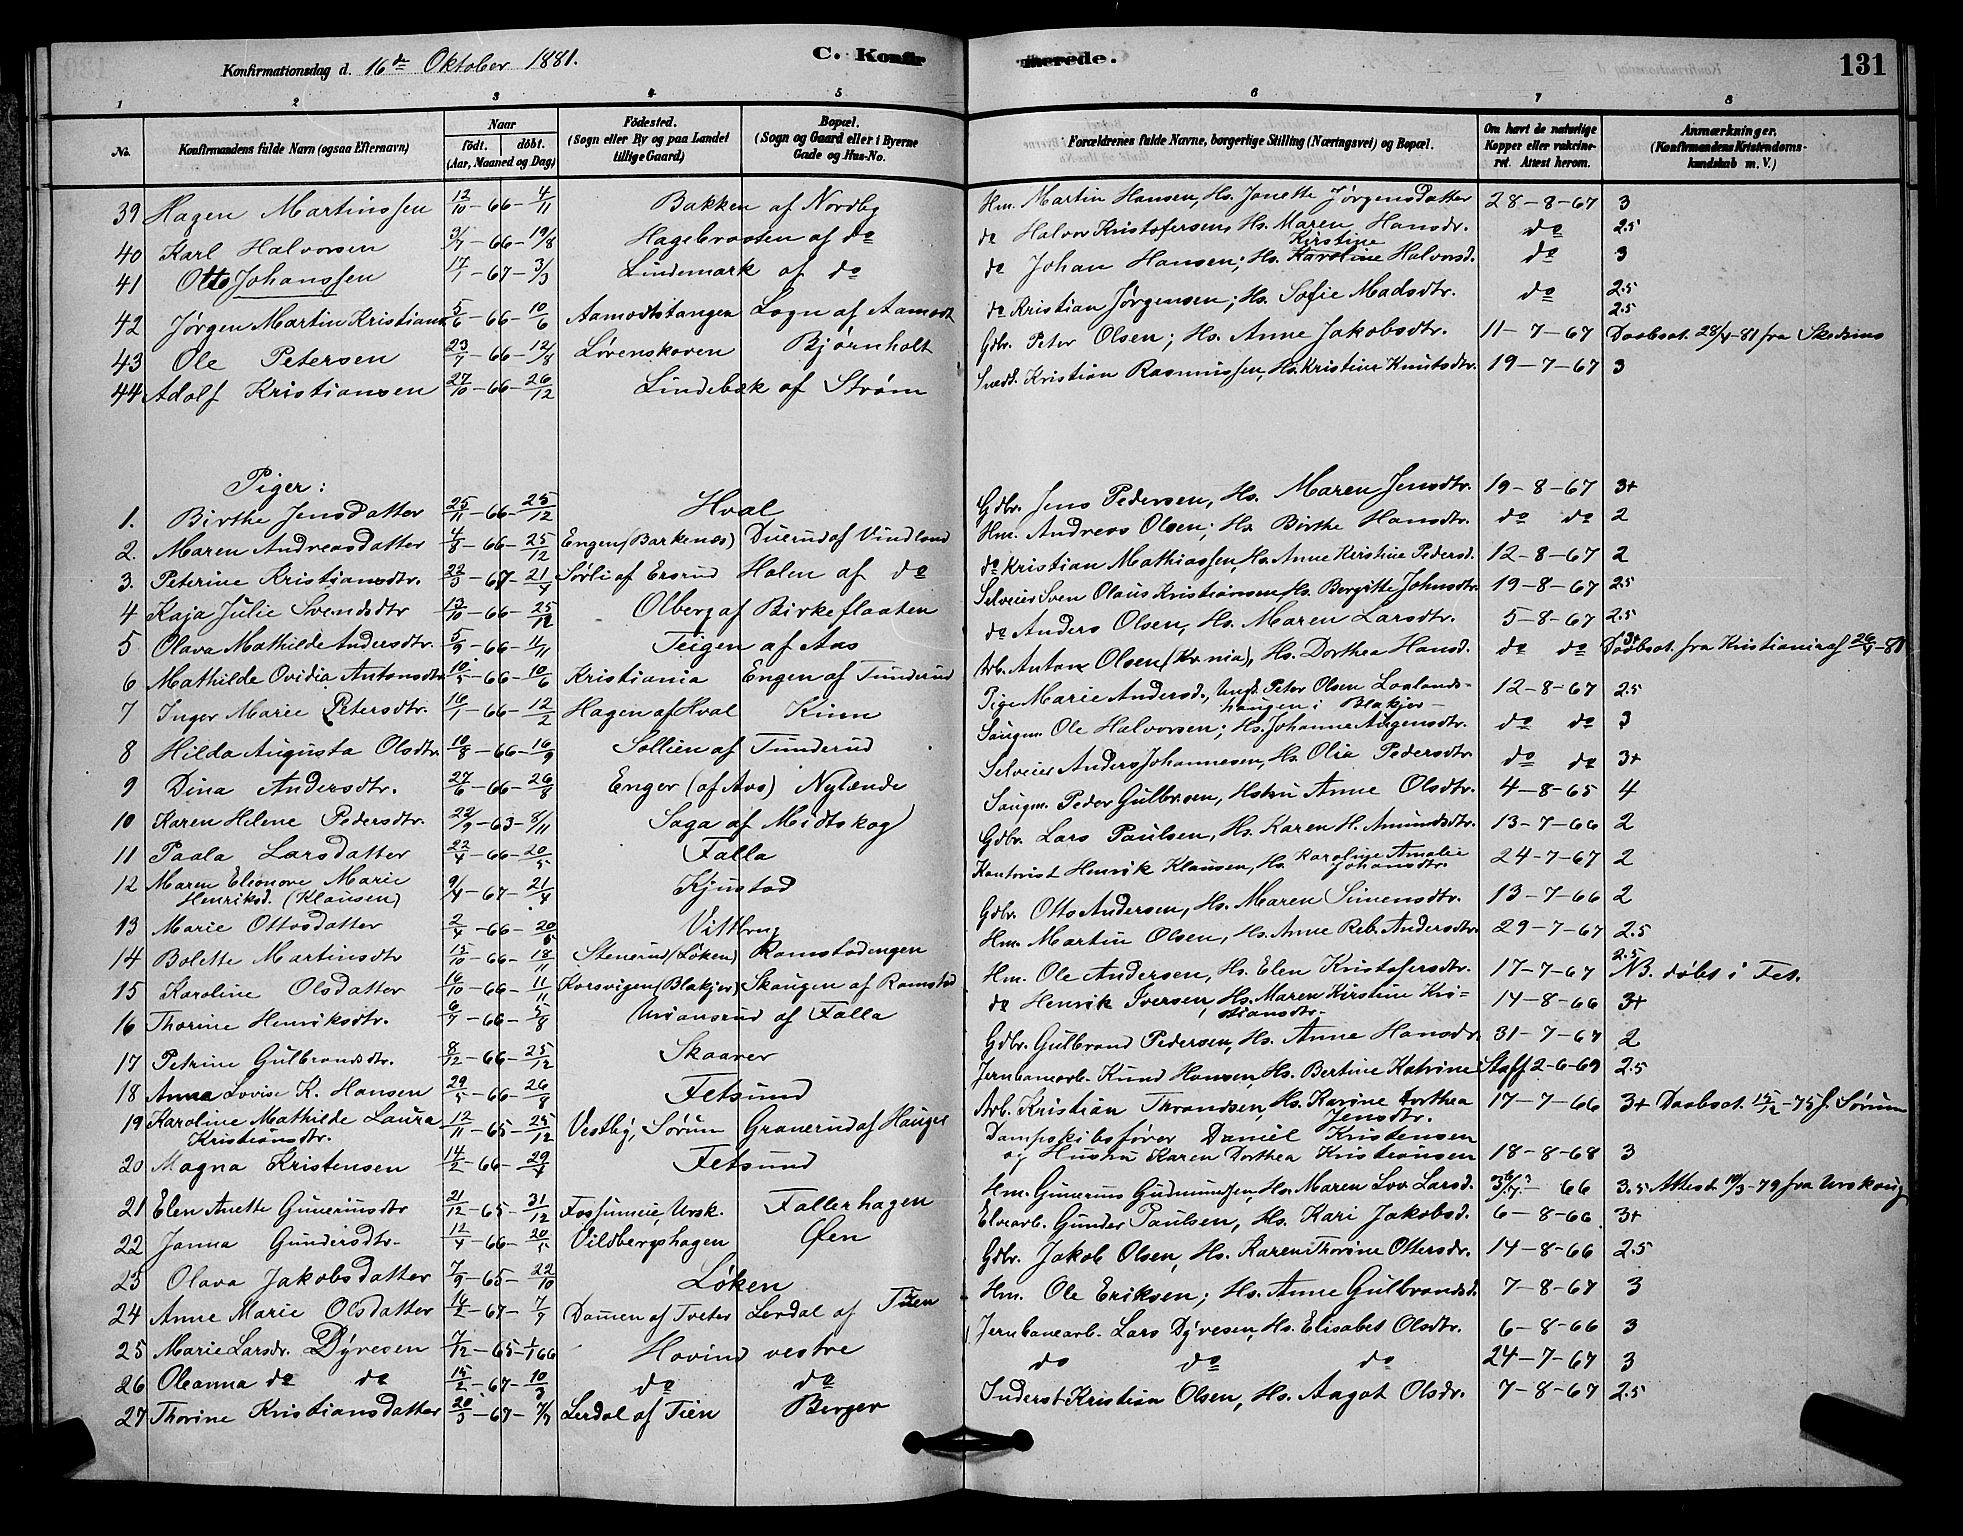 Konfirmationsdag d. 16de Oktober 1881. C. Konfirmerede. 131
1 2 3 4 5 6 7 8
No. Konfirmandens fulde Navn (ogsaa Efternavn) Naar født. døbt. (Aar, Maaned og Dag) Fødested. (Sogn eller By og paa Landet tillige Gaard) Bopæl. (Sogn og Gaard eller i Byerne Gade og Hus-No. Forældrenes fulde Navne, borgerlige Stilling (Næringsvei) og Bopæl. Om havt de naturlige Kopper eller vakcineret. Attest herom. Anmærkninger. (Konfirmandens Kristendomskundskab m. V.)
39 Hagen Martinssen 12/10 - 66 - 4/11 Bakken af Nordby Hm. Martin Hansen, Hs. Janette Jørgensdatter 28-8-67 3
40 Karl Halvorsen 3/7 - 66 - 19/8 Hagebraaten af do do Halvor Kristofersen, Hs. Maren Hansdr. do 2.5
41 Otto Johanssen 17/1 - 67 - 3/3 Lindemark af do do Johan Hansen; Hs. Karoline Kirstine Halvorsd. do 3
42 Jørgen Martin Kristians. 5/6 - 66 - 10/6 Aamodtstangen Logn af Aamodt do Kristian Jørgensen; Hs. Sofie Madsdtr. do 2.5
43 Ole Petersen 23/7 - 66 - 12/8 Løvenskoven Bjørnholt Gdbr. Peter Olsen; Hs. Anne Jakobsdtr. 11-7-67 2.5 Daabsat. 28/4-81 fra Skedsmo
44 Adolf Kristiansen 27/10 - 66 - 26/12 Lindebæk af Strøm Snedk. Kristian Rasmussen, Hs. Kristine Knutsdtr. 19-7-67 3
Piger:
1. Birthe Jensdatter 25/11 - 66 - 25/12 Hval Gdbr. Jens Pedersen, Hs. Maren Jensdtr. 19-8-67 3+
2. Maren Andreasdatter 4/8 - 66 - 25/12 Engen (Barkenæs) Duerud af Vindlund Hm. Andreas Olsen; Hs. Birthe Hansdtr. do do 2
3. Peterine Kristiansdtr. 22/3 - 67 - 21/4 Sørli af Ersrud Holen af do do Kristian Mathiassen, Hs. Anne Kirstine Pedersd. 12-8-67 2
4 Kaja Julie Svendsdtr 13/10 - 66 - 25/12 Olberg af Birkeflaaten Selveier Sven Olaus Kristiansen, Hs. Bergitte Johnsdtr. 19-8-67 2.5
5 Olava Mathilde Andersdtr. 5/9 - 66 - 11/11 Teigen af Aas do Anders Olsen, Hs. Maren Larsdtr. 5-8-67 2.5
6 Mathilde Ovidia Antonsdtr. 10/5 - 66 - 10/6 Kristiania Engen af Tunderud Arb. Anton Olsen (Kr.nia), Hs. Dorthea Hansd. do do 3+ Daabsat. fra Kristiania af 26/4-81
7 Inger Marie Petersdtr. 16/1 - 66 - 12/2 Hagen af Hval Kinn Pige Marie Andersd., Ungk. Peter Olsen Laalandshaugen i Blakjer 12-8-67 2.5
8 Hilda Augusta Olsdtr. 10/8 - 66 - 16/9 Sollien af Tunderud Saugm. Ole Halvorsen; Hs. Johanne Augensdtr. do do 3
9 Dina Andersdtr. 27/6 - 66 - 26/8 Enger (af Aas) Nylænde Selveier Anders Johannesen, Hs. Olia Pedersdtr. do do 3+
10 Karen Helene Pedersdtr. 22/9 - 63 - 8/11 Saga af Midtskog Saugm. Peder Gulbrsen, Hstru Anne Olsdtr. 4-8-65 4
11 Paala Larsdatter 22/4 - 66 - 20/5 Falla Gdbr. Lars Paulsen, Hs. Karen H. Amundsdtr. 13-7-66 2
12 Maren Eleonore Marie Henriksd. (Klausen) 9/4 - 67 - 21/4 Kjustad Kontorist Henrik Klausen, Hs. Karoline Amalie Johansdtr. 24-7-67 2
13 Marie Ottosdatter 2/4 - 66 - 20/5 Vittbry Gdbr. Otto Andersen, Hs. Maren Simensdtr. 13-7-66 2
14 Bolette Martinsdtr 15/10 - 66 - 18/11 Stenerud (Løken) Ramstadengen Hm. Martin Olsen, Hs. Anne Reb. Andersdtr. 29-7-67 2.5
15 Karoline Olsdatter 16/10 - 66 - 11/11 Korsvigen (Blakjer) Skaugen af Ramstad Hm. Ole Andersen, Hs. Elen Kristofersdtr. 17-7-67 2.5 NB. døbt i Fet.
16 Thorine Henriksdtr. 6/7 - 66 - 5/8 Uriansrud af Falla do Henrik Iversen, Hs. Maren Kirstine Kristiansdtr. 14-8-66 3+
17 Petrine Gulbrandsdtr. 8/12 - 66 - 25/12 Skaarer Gdbr. Gulbrand Pedersen, Hs. Anne Hansdr. 31-7-67 2
18 Anna Lovise K. Hansen 29/5 - 66 - 26/8 Fetsund Jernbanearb. Knud Hansen, Hs. Bertine Katrine Staff 2-6-69 2.5
19 Karoline Mathilde Laura Kristiansdtr. 12/11 - 65 - 25/12 Vestby, Sørum Granerud af Hauger Arb. Kristian Throndsen, Hs. Karine Dorthea Jensdtr. 17-7-66 3+ Daabsat. 15/12-75 f. Sørum
20 Magna Kristensen 14/2 - 66 - 29/4 Fetsund Dampskibsfører Daniel Kristensen og Hustru Karen Dorthea Kristiansen 18-8-68 3
21 Elen Anette Guneriusdtr 21/12 - 65 - 31/12 Fossumeie, Ursk. Fallerhagen Hm. Gunerius Gudmundsen, Hs. Maren Lov. Larsd. 66 3.5 Attest 10/3-79 fra Urskoug
22 Janna Gundersdtr. 12/4 - 66 - 20/5 Vildbergshagen Øen Elvearb. Gunder Paulsen, Hs. Kari Jakobsd. 6-8-66 3+
23 Olava Jakobsdatter 7/9 - 65 - 22/10 Løken Gdbr. Jakob Olsen, Hs. Karen Thorine Ottersdr. 14-8-66 2.5
24 Anne Marie Olsdatter 14/2 - 67 - 7/7 Damen af Tveter Lerdal af Tien Hm. Ole Eriksen; Hs. Anne Gulbrandsd. 7-8-67 3
25 Marie Larsdr. Dyresen 7/12 - 65 - 1/1 66 Hovind vestre Jernbanearb. Lars Dyresen, Hs. Elisabet Olsdtr. 6-8-66 3
26 Oleanna do do 15/2 - 67 - 10/3 do do do do do 24-7-67 3
27 Thorine Kristiansdatter 20/3 - 67 - 7/7 Lerdal af Tien Berger Inderst Kristian Olsen, Hs. Aagot Olsdr. 7-8-67 2.5